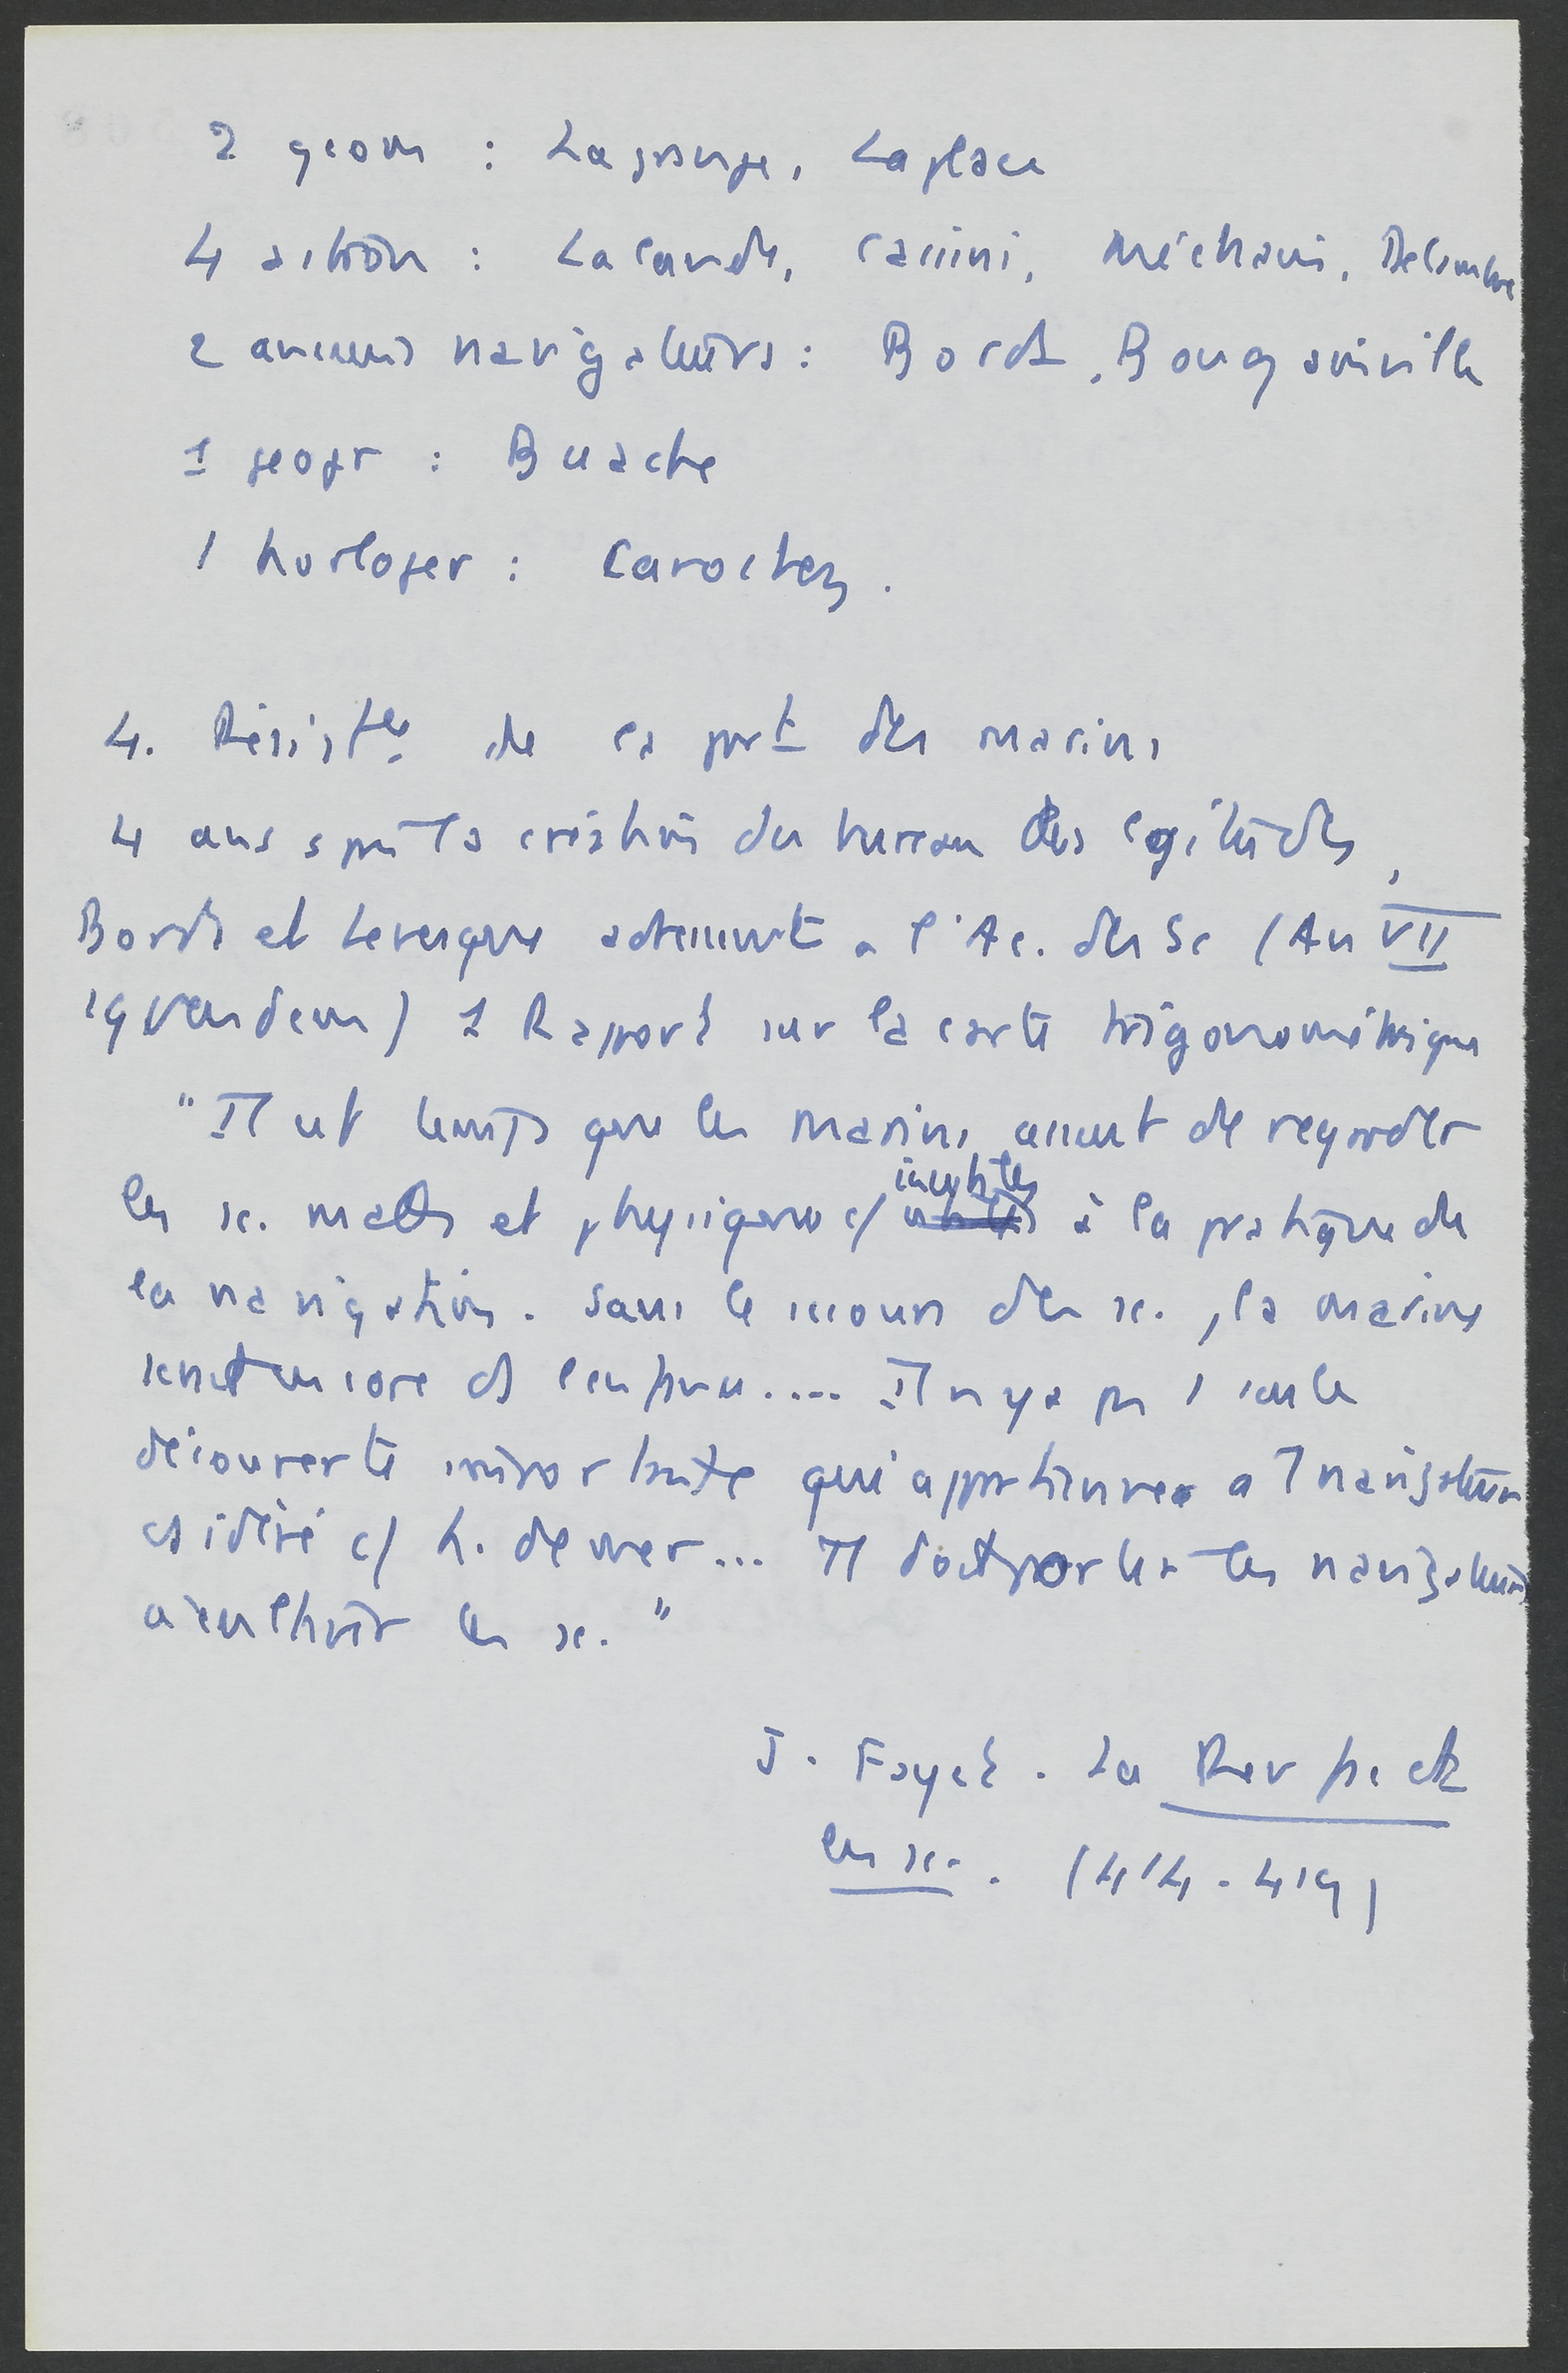 2 geom : Lagrange, Laplace
4 astron : Lalande, Cassini, Méchain, Delambre
2 anciens navigateurs : Borda, Bougainville
1 geogr : Buache
1 horloger : Carochez.
4. Résistce de la part des marins
4 ans après la création du bureau des lgitudes,
Borda et Levesque adressent a l'Ac. des Sc (An VII
19 Vendem) 1 Rapport sur la carte trigonométrique
"Il est temps que les marins cessent de regarder
les sc. math et physiques c/ inutiles à la pratique de
la navigation. Sans le secours des sc., la marine
serait encore ds l'enfance.... Il n'y a pas 1 seule
découverte importante qui appartienne a 1 navigateur
csidéré c/ h. de mer... Il doit porter les navigateurs
a cultiver les sc."
J. Fayet. La Rev fse et
les sc. . (414-419)